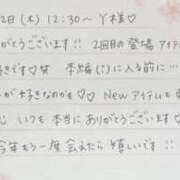 2日(木) 12:30〜 Y様♡
がとうございます!! 2回目の登場 アイテ
きです♡笑 本編(?)に入る前に…
が好きなのかも♡♡ Newアイテムも
心 いつも本当に ありがとうござい
今年もう一度 会えたら 嬉しいです!!